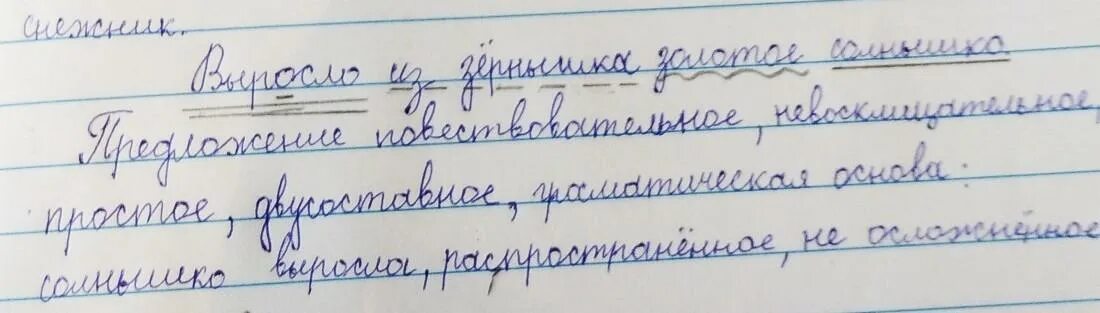 снежник.
Выросло из зёрнышка золотое солнышко
Предложение повествовательное, невосклицательное,
простое, двусоставное, граматическая основа:
солнышко выросла, распространённое, не осложнённое